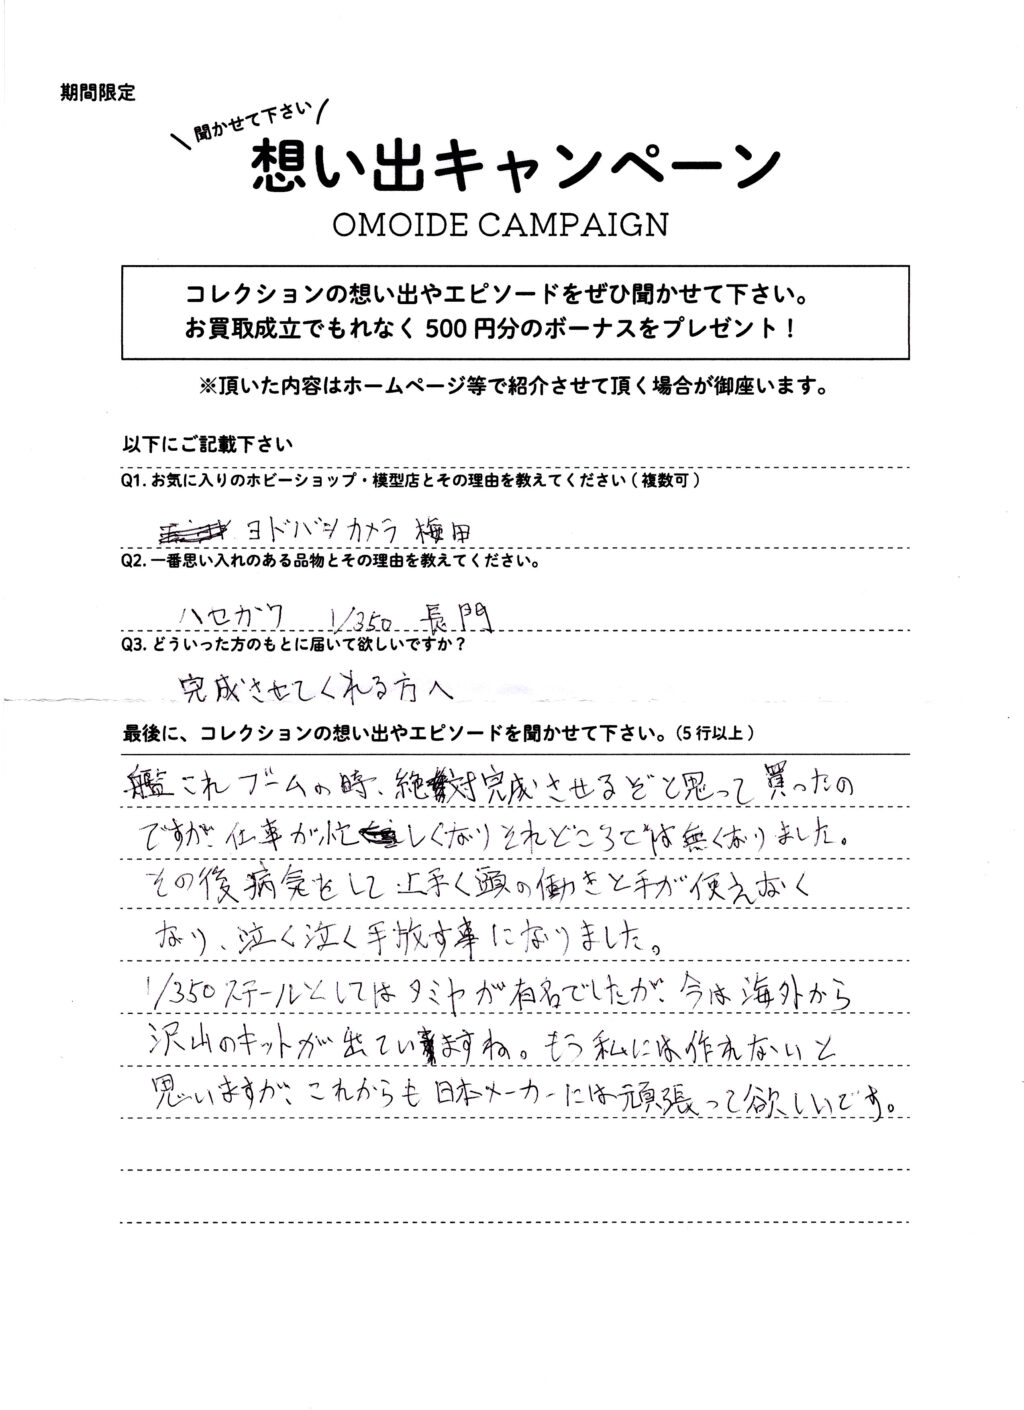 期間限定
聞かせて下さい
想い出キャンペーン
OMOIDE CAMPAIGN
コレクションの想い出やエピソードをぜひ聞かせて下さい。
お買取成立でもれなく 500 円分のボーナスをプレゼント！
※頂いた内容はホームページ等で紹介させて頂く場合が御座います。
以下にご記載下さい
Q1. お気に入りのホビーショップ・模型店とその理由を教えてください ( 複数可 )
ヨドバシカメラ 梅田
Q2. 一番思い入れのある品物とその理由を教えてください。
ハセガワ 1/350 長門
Q3. どういった方のもとに届いて欲しいですか？
完成させてくれる方へ
最後に、コレクションの想い出やエピソードを聞かせて下さい。(5 行以上 )
艦これブームの時、絶対完成させるぞと思って買ったの
ですが、仕事が忙しくなりそれどころでは無くなりました。
その後病気をして上手く頭の働きと手が使えなく
なり、泣く泣く手放す事になりました。
1/350スケールとしてはタミヤが有名でしたが、今は海外から
沢山のキットが出ていますね。もう私には作れないと
思いますが、これからも日本メーカーには頑張って欲しいです。